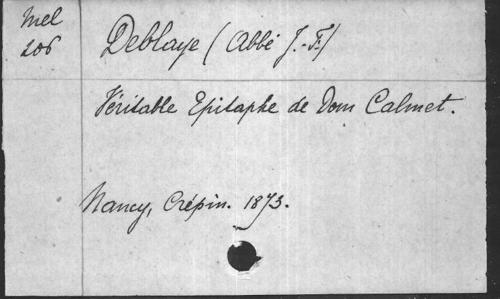 Mel
206
Deblaye (Abbé J.-F.)
Véritable Epitaphe de Dom Calmet.
Nancy, Crépin. 1873.